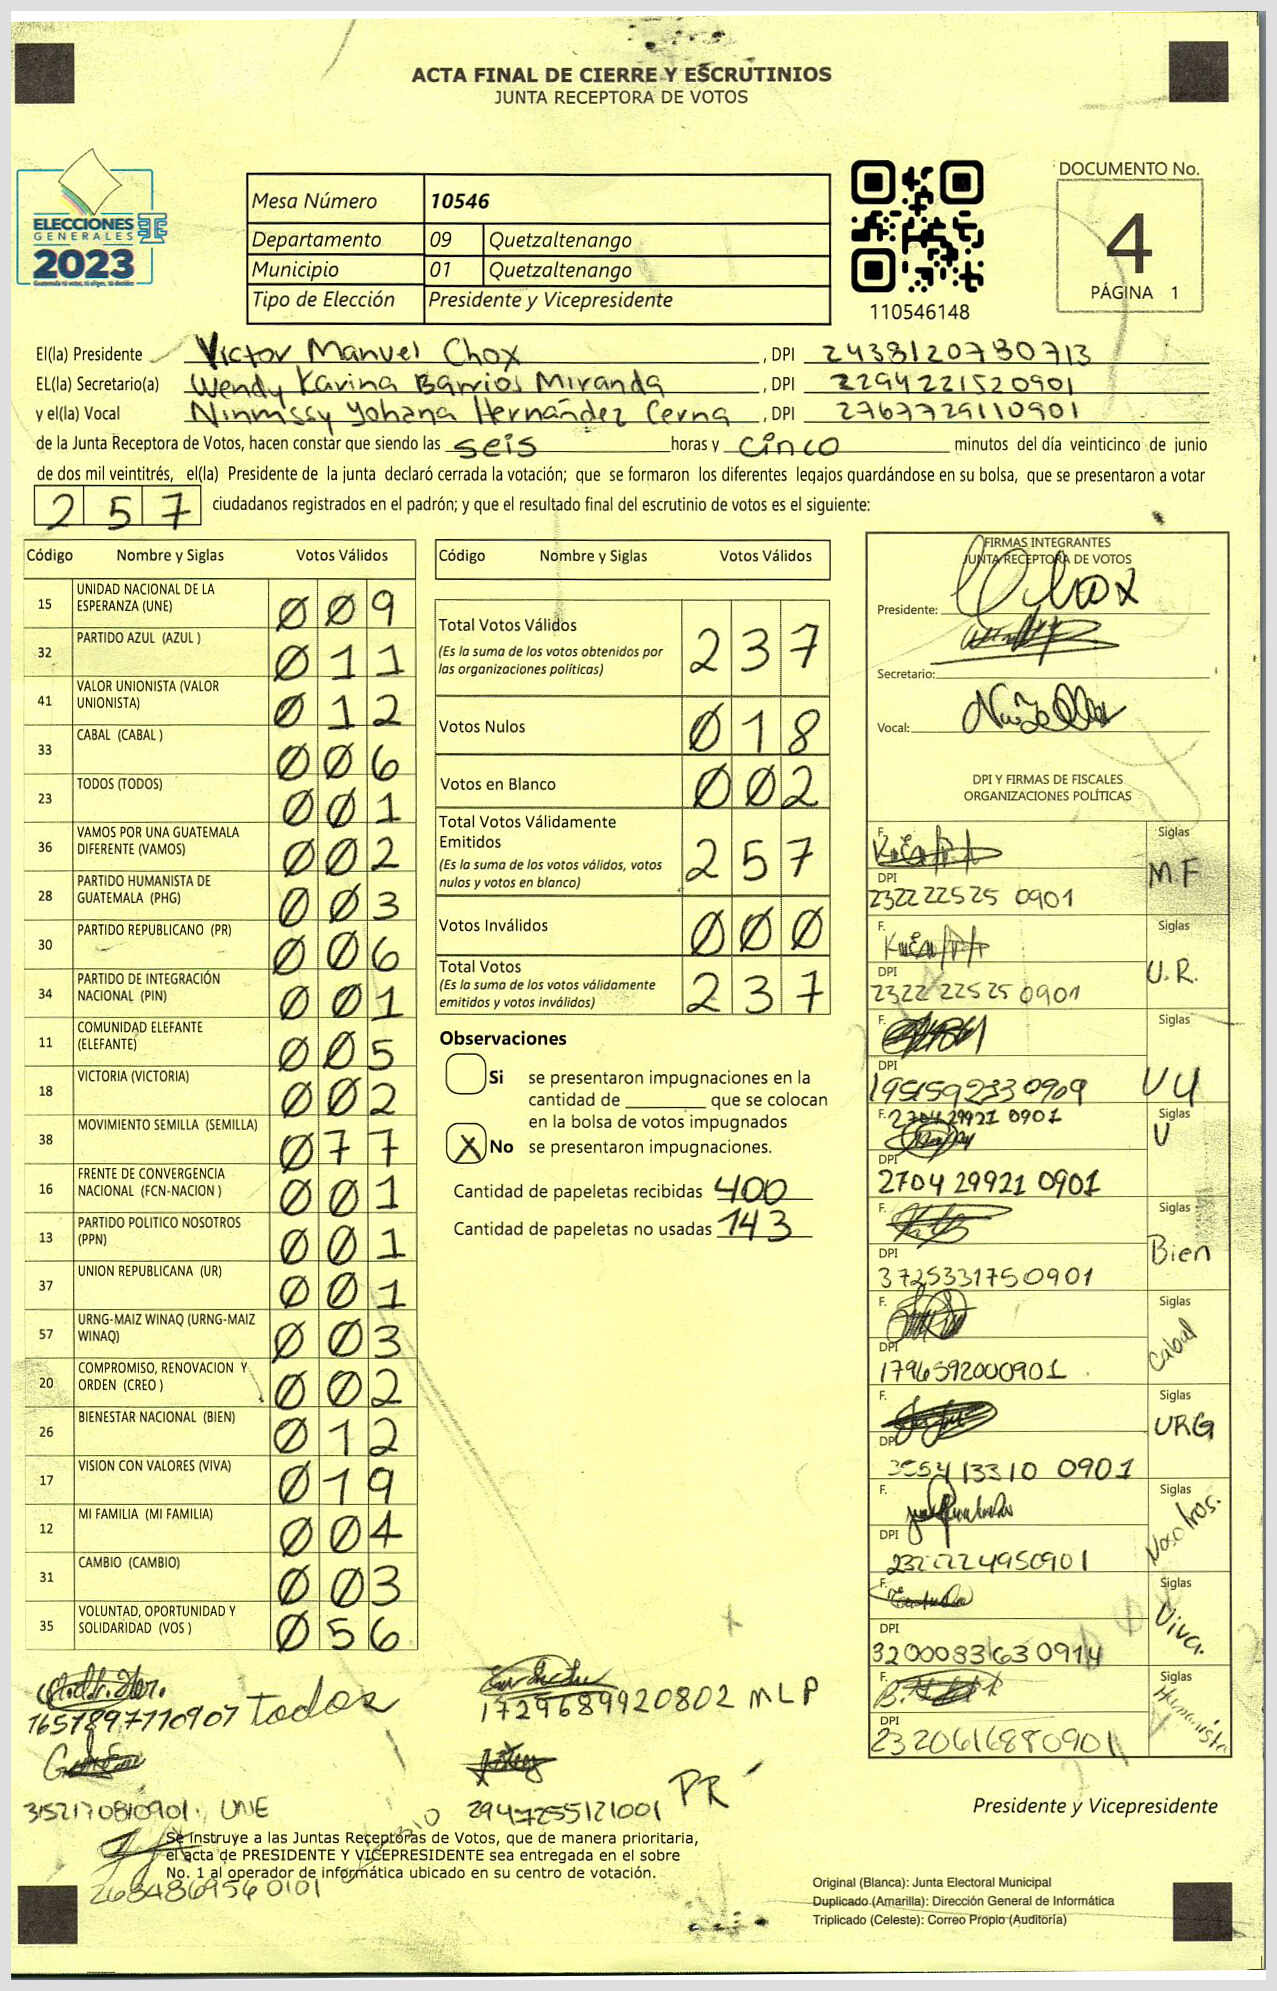 ACTA FINAL DE CIERRE Y ESCRUTINIOS
JUNTA RECEPTORA DE VOTOS
ELECCIONES
GENERALES
2023
Mesa Número 10546
Departamento 09 Quetzaltenango
Municipio 01 Quetzaltenango
Tipo de Elección Presidente y Vicepresidente
110546148
DOCUMENTO No.
4
PÁGINA 1
El(la) Presidente Victor Manuel Chox , DPI 2438120730713
EL(la) Secretario(a) Wendy Karina Barrios Miranda , DPI 2294221520901
y el(la) Vocal Ninmssy Yohana Hernández Cerna , DPI 2767729110901
de la Junta Receptora de Votos, hacen constar que siendo las seis horas y cinco minutos del día veinticinco de junio
de dos mil veintitrés, el(la) Presidente de la junta declaró cerrada la votación; que se formaron los diferentes legajos guardándose en su bolsa, que se presentaron a votar
257 ciudadanos registrados en el padrón; y que el resultado final del escrutinio de votos es el siguiente:
Código Nombre y Siglas Votos Válidos
15 UNIDAD NACIONAL DE LA
ESPERANZA (UNE) 009
32 PARTIDO AZUL (AZUL ) 011
41 VALOR UNIONISTA (VALOR
UNIONISTA) 012
33 CABAL (CABAL ) 006
23 TODOS (TODOS) 001
36 VAMOS POR UNA GUATEMALA
DIFERENTE (VAMOS) 002
28 PARTIDO HUMANISTA DE
GUATEMALA (PHG) 003
30 PARTIDO REPUBLICANO (PR) 006
34 PARTIDO DE INTEGRACIÓN
NACIONAL (PIN) 001
11 COMUNIDAD ELEFANTE
(ELEFANTE) 005
18 VICTORIA (VICTORIA) 002
38 MOVIMIENTO SEMILLA (SEMILLA) 077
16 FRENTE DE CONVERGENCIA
NACIONAL (FCN-NACION ) 001
13 PARTIDO POLITICO NOSOTROS
(PPN) 001
37 UNION REPUBLICANA (UR) 001
57 URNG-MAIZ WINAQ (URNG-MAIZ
WINAQ) 003
20 COMPROMISO, RENOVACION Y
ORDEN (CREO ) 002
26 BIENESTAR NACIONAL (BIEN) 012
17 VISION CON VALORES (VIVA) 019
12 MI FAMILIA (MI FAMILIA) 004
31 CAMBIO (CAMBIO) 003
35 VOLUNTAD, OPORTUNIDAD Y
SOLIDARIDAD (VOS ) 056
Código Nombre y Siglas Votos Válidos
Total Votos Válidos 237
(Es la suma de los votos obtenidos por
las organizaciones políticas)
Votos Nulos 018
Votos en Blanco 002
Total Votos Válidamente
Emitidos 257
(Es la suma de los votos válidos, votos
nulos y votos en blanco)
Votos Inválidos 000
Total Votos 237
(Es la suma de los votos válidamente
emitidos y votos inválidos)
Observaciones
Si se presentaron impugnaciones en la
cantidad de ________ que se colocan
en la bolsa de votos impugnados
X No se presentaron impugnaciones.
Cantidad de papeletas recibidas 400
Cantidad de papeletas no usadas 143
FIRMAS INTEGRANTES
JUNTA RECEPTORA DE VOTOS
Presidente: Chox
Secretario:
Vocal:
DPI Y FIRMAS DE FISCALES
ORGANIZACIONES POLÍTICAS
F. Siglas
M.F
DPI
2322 22525 0901
F. Siglas
U.R.
DPI
2322 22525 0901
F. Siglas
VU
DPI
1951592330909
F. 2704 29921 0901 Siglas
U
DPI
2704 29921 0901
F. Siglas
Bien
DPI
3725331750901
F. Siglas
Cabal
DPI
1796592000901
F. Siglas
URG
DPI
413310 0901
F. Siglas
Nosotros.
DPI
F. Siglas
Viva.
DPI
3200083630914
F. Siglas
Humanista
DPI
2320616880901
1657897710907 Todos
1729689920802 MLP
3152170810901. UNE
2947255121001 PR
2684869560101
Presidente y Vicepresidente
Se instruye a las Juntas Receptoras de Votos, que de manera prioritaria,
el acta de PRESIDENTE Y VICEPRESIDENTE sea entregada en el sobre
No. 1 al operador de informática ubicado en su centro de votación.
Original (Blanca): Junta Electoral Municipal
Duplicado (Amarilla): Dirección General de Informática
Triplicado (Celeste): Correo Propio (Auditoría)